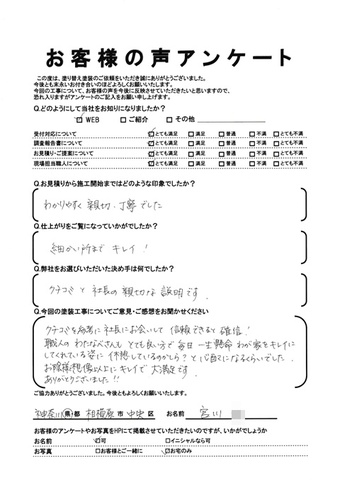 お客様の声アンケート
この度は、塗り替え塗装のご依頼をいただき誠にありがとうございました。
今後とも末永いお付き合いのほどよろしくお願いいたします。
今回の工事について、お客様の声を今後に反映させていただきたいと思いますので、
恐れ入りますがアンケートのご記入をお願い申し上げます。
Q.どのようにして当社をお知りになりましたか？
☑ WEB □ ご紹介 □ その他
受付対応について ☑とても満足 □満足 □普通 □不満 □とても不満
調査報告書について ☑とても満足 □満足 □普通 □不満 □とても不満
お見積り・ご提案について ☑とても満足 □満足 □普通 □不満 □とても不満
現場担当職人について ☑とても満足 □満足 □普通 □不満 □とても不満
Q.お見積りから施工開始まではどのような印象でしたか？
わかりやすく 親切、丁寧でした
Q.仕上がりをご覧になっていかがでしたか？
細かい所まで キレイ！
Q.弊社をお選びいただいた決め手は何でしたか？
クチコミ と 社長の 親切な 説明 です。
Q.今回の塗装工事についてご意見・ご感想をお聞かせください
クチコミを参考に 社長にお会いして 信頼できると 確信！
職人の わたなべさんも とても良い方で 毎日 一生懸命 わが家をキレイに
してくれている姿に 休憩しているのかしら？と心配になるくらいでした。
お陰様で想像以上に キレイで 大満足です
ありがとうございました!!
ご協力ありがとうございました。今後ともよろしくお願いいたします。
神奈川 県 都 相模原 市 中央 区 お名前 宮川
お客様のアンケートやお写真をHPにて掲載させていただきたいのですが、いかがでしょうか
お名前 ☑可 □イニシャルなら可
お写真 □お客様とご一緒に ☑お宅のみ